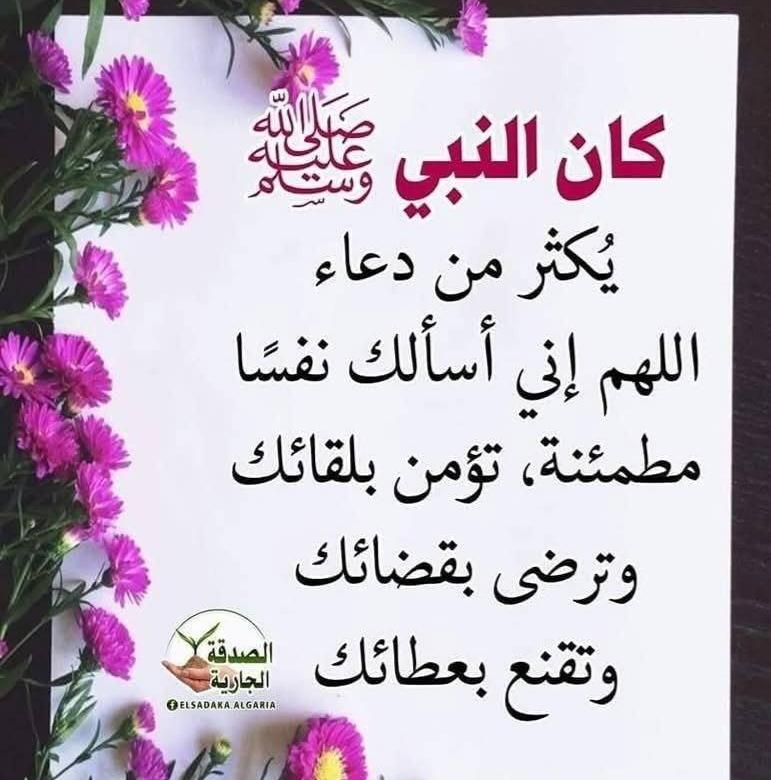 كان النبي صلى الله عليه وسلم
يُكثر من دعاء
اللهم إني أسألك نفسًا
مطمئنة، تؤمن بلقائك
وترضى بقضائك
وتقنع بعطائك
الصدقة
الجارية
ELSADAKA.ALGARIA